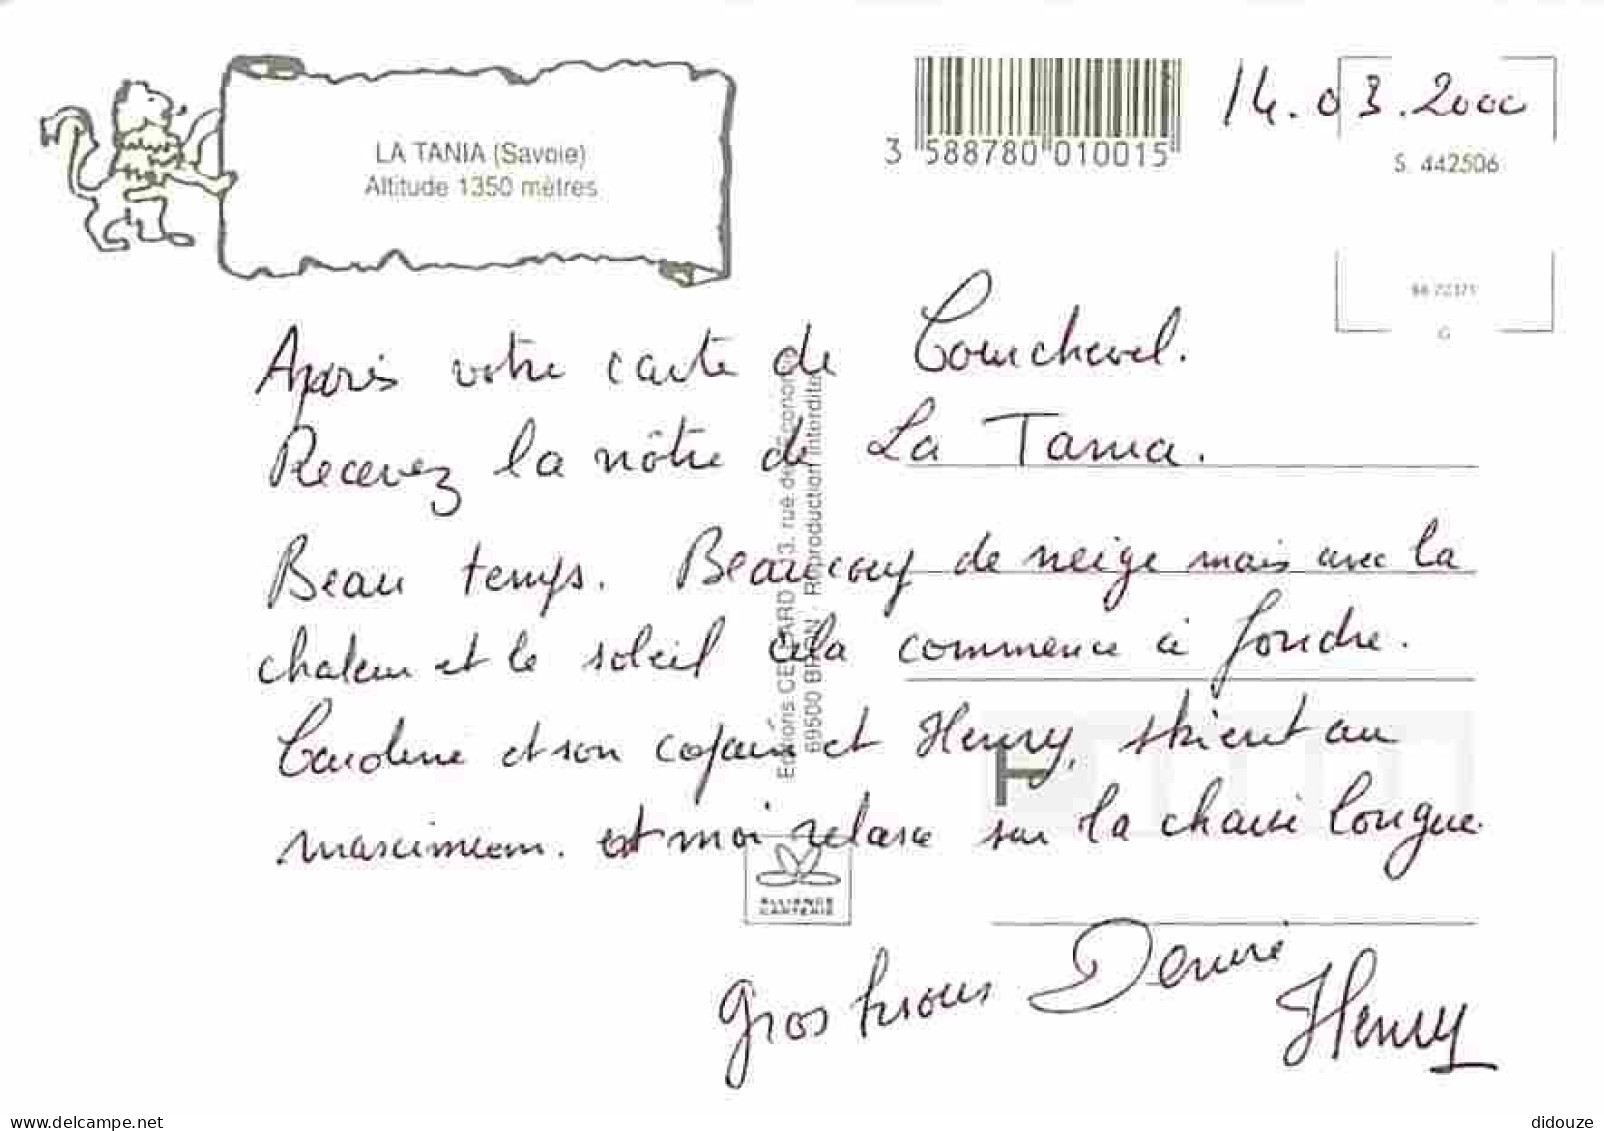 LA TANIA (Savoie)
Altitude 1350 mètres
3 588780 010015
14.03.2000
S. 442506
Après votre carte de Courchevel.
Recevez la nôtre de La Tania.
Beau temps. Beaucoup de neige mais avec la
chaleur et le soleil cela commence à fondre.
Caroline et son copain et Henry, skient au
maximum. et moi relaxe sur la chaise longue.
Gros bisous Denise
Henry
Editions CELLARD 3, rue de l'Economie
69500 BRON - Reproduction interdite
ALLIANCE
CARTERIE
www.delcampe.net
didouze